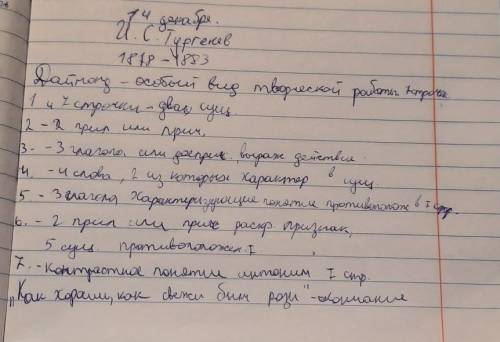 14 декабря.
И. С. Тургенев
1878 - 1883
Даймонд - особый вид творческой работы 7строчк
1 и 7 строчки - два сущ
2 - 2 прил или прич.
3. - 3 глагола или дееприч. выраж действие.
4. - 4 слова, 2 из которых характер в сущ
5 - 3 глагола характеризующие понятие противополож в I стр.
6. - 2 прил или прич раскр. признак,
5 сущ. противоположн. I
7. - контрастное понятие антоним I стр.
"Как хороши, как свежи были розы" -